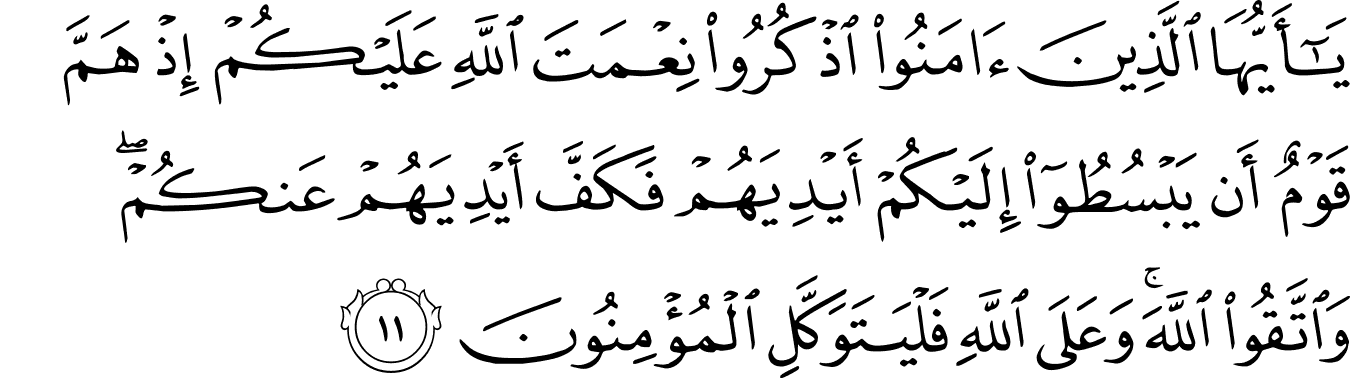 يَـٰٓأَيُّهَا ٱلَّذِينَ ءَامَنُوا۟ ٱذْكُرُوا۟ نِعْمَتَ ٱللَّهِ عَلَيْكُمْ إِذْ هَمَّ
قَوْمٌ أَن يَبْسُطُوٓا۟ إِلَيْكُمْ أَيْدِيَهُمْ فَكَفَّ أَيْدِيَهُمْ عَنكُمْ ۖ
وَٱتَّقُوا۟ ٱللَّهَ ۚ وَعَلَى ٱللَّهِ فَلْيَتَوَكَّلِ ٱلْمُؤْمِنُونَ ١١